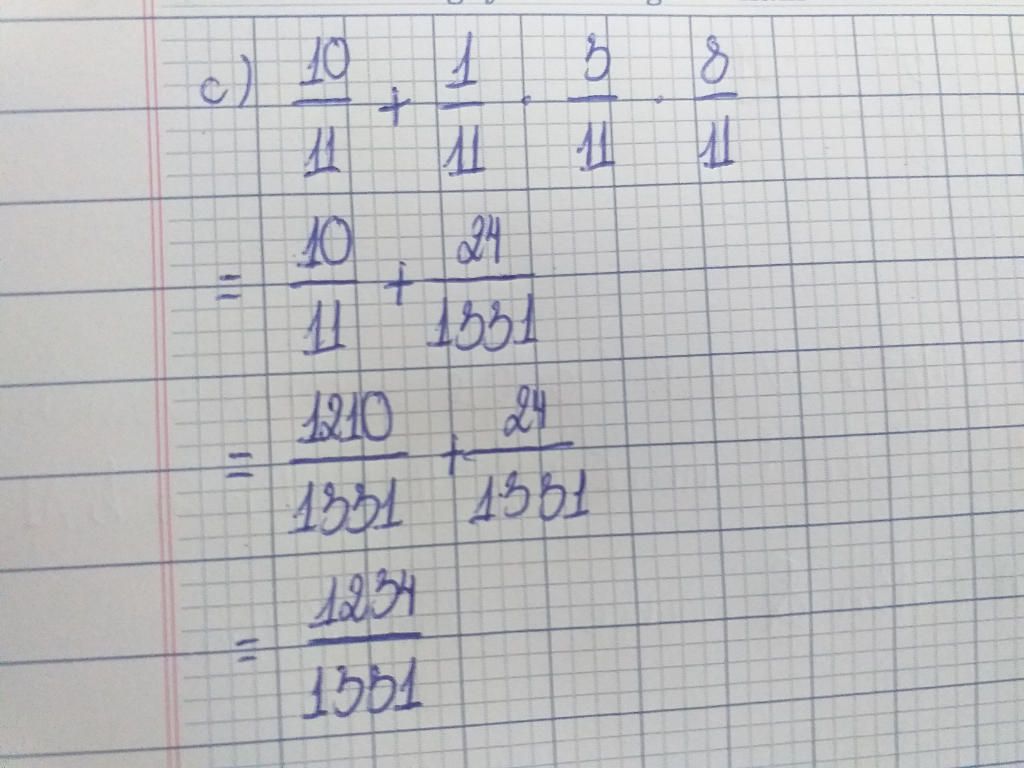 c) 10/11 + 1/11 · 3/11 · 8/11
= 10/11 + 24/1331
= 1210/1331 + 24/1331
= 1234/1331